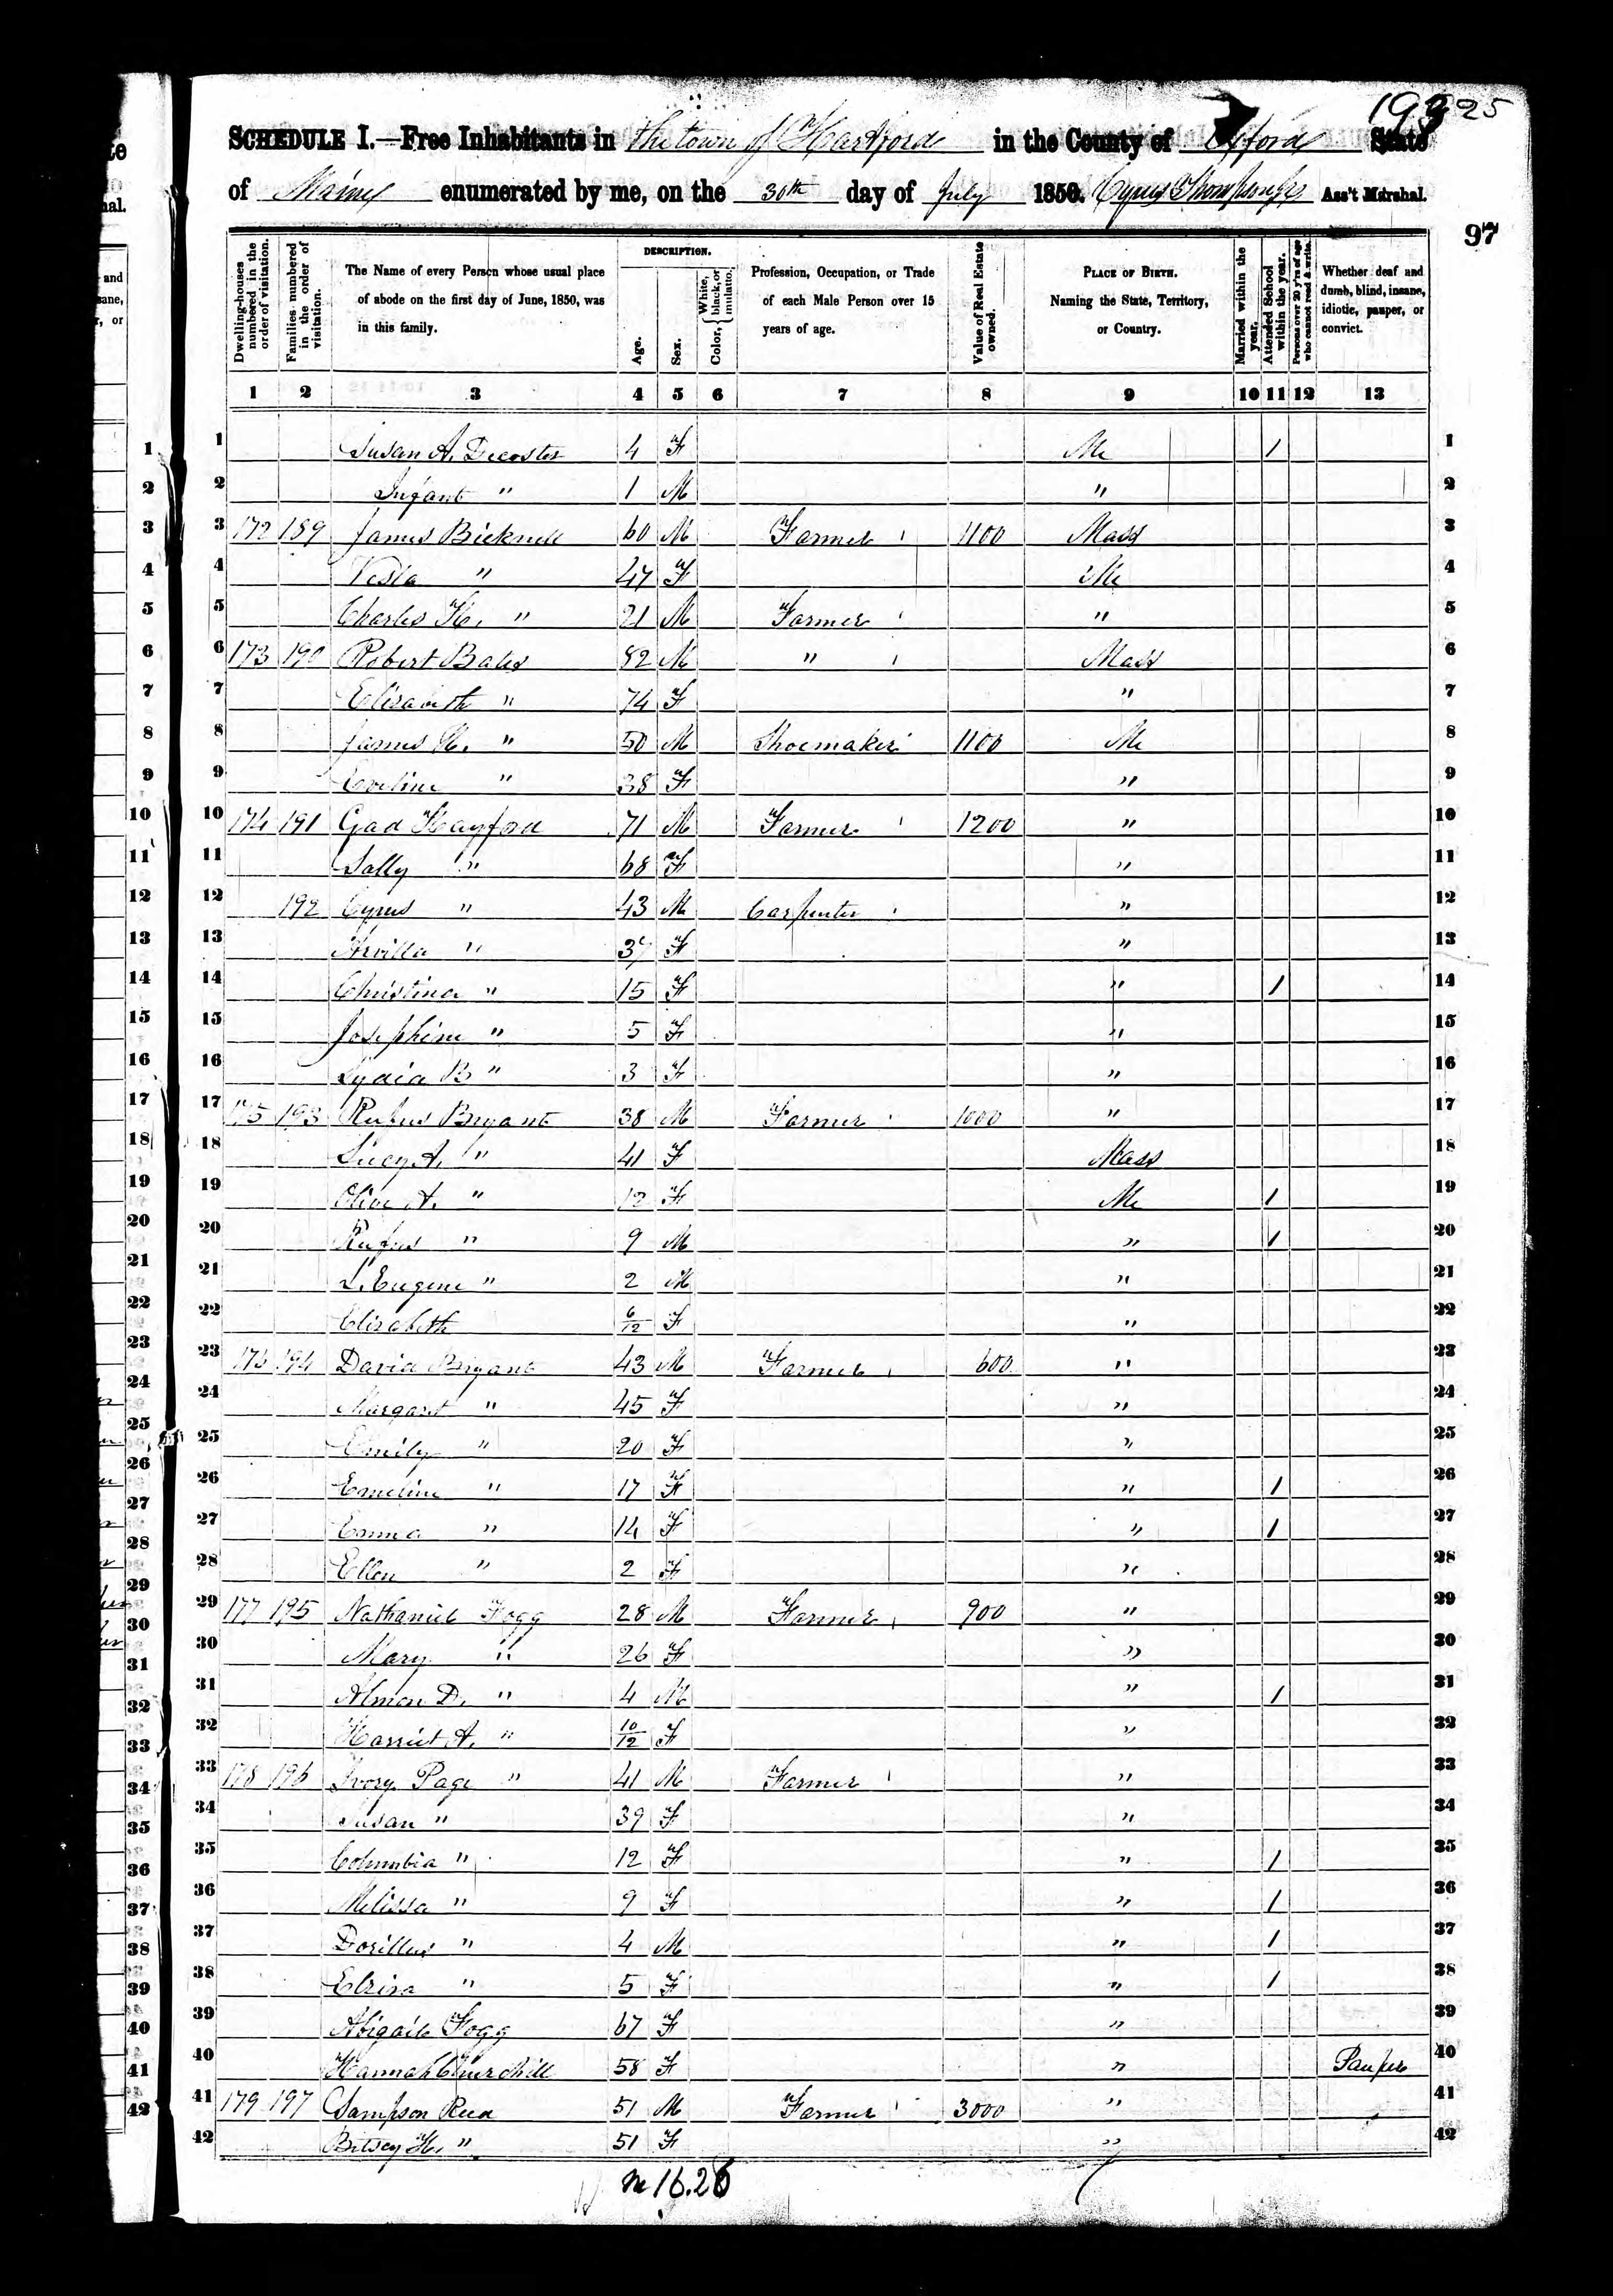 1993 25
SCHEDULE I.—Free Inhabitants in The town of Hartford in the County of Oxford State
of Maine enumerated by me, on the 30th day of July 1850. Cyrus Thompson Ass't Marshal.
97
Dwelling-houses numbered in the order of visitation.
Families numbered in the order of visitation.
The Name of every Person whose usual place of abode on the first day of June, 1850, was in this family.
DESCRIPTION.
Age.
Sex.
Color, White, black, or mulatto.
Profession, Occupation, or Trade of each Male Person over 15 years of age.
Value of Real Estate owned.
PLACE OF BIRTH. Naming the State, Territory, or Country.
Married within the year.
Attended School within the year.
Persons over 20 y'rs of age who cannot read & write.
Whether deaf and dumb, blind, insane, idiotic, pauper, or convict.
1 2 3 4 5 6 7 8 9 10 11 12 13
1 Susan A. Decoster 4 F Me / 1
2 Infant " 1 M " 2
3 172 189 James Bicknell 60 M Farmer 1100 Mass 3
4 Vesta " 47 F Me 4
5 Charles H. " 21 M Farmer " 5
6 173 190 Robert Bates 82 M " Mass 6
7 Elisabeth " 74 F " 7
8 James H. " 50 M Shoemaker 1100 Me 8
9 Eveline " 38 F " 9
10 174 191 Gad Hayford 71 M Farmer 1200 " 10
11 Sally " 68 F " 11
12 192 Cyrus " 43 M Carpenter " 12
13 Arvilla " 37 F " 13
14 Christina " 15 F " / 14
15 Josephine " 5 F " 15
16 Lydia B " 3 F " 16
17 175 193 Rufus Bryant 38 M Farmer 1000 " 17
18 Lucy A. " 41 F Mass 18
19 Olive A. " 12 F Me / 19
20 Rufus " 9 M " / 20
21 L. Eugene " 2 M " 21
22 Elizabeth 6/12 F " 22
23 176 194 David Bryant 43 M Farmer 600 " 23
24 Margaret " 45 F " 24
25 Emily " 20 F " 25
26 Emeline " 17 F " / 26
27 Emma " 14 F " / 27
28 Ellen " 2 F " 28
29 177 195 Nathaniel Fogg 28 M Farmer 900 " 29
30 Mary " 26 F " 30
31 Almon D. " 4 M " / 31
32 Harriet A. " 10/12 F " 32
33 178 196 Ivory Page " 41 M Farmer " 33
34 Susan " 39 F " 34
35 Columbia " 12 F " / 35
36 Melissa " 9 F " / 36
37 Dorillus " 4 M " / 37
38 Elzina " 5 F " / 38
39 Abigail Fogg 67 F " 39
40 Hannah Churchill 58 F " Pauper 40
41 179 197 Sampson Reed 51 M Farmer 3000 " 41
42 Betsey H. " 51 F " 42
m 16.26